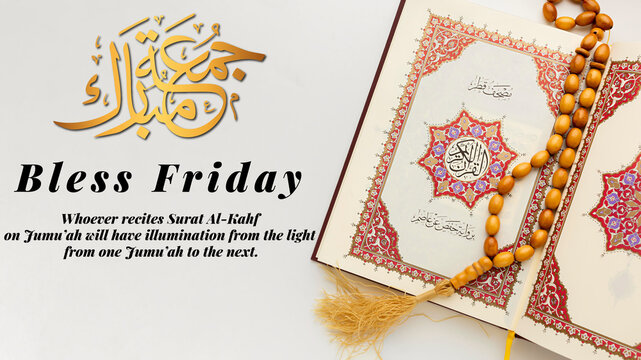 جمعة مباركة
Bless Friday
Whoever recites Surat Al-Kahf
on Jumu'ah will have illumination from the light
from one Jumu'ah to the next.
مصحف قطر
القرآن الكريم
برواية حفص عن عاصم